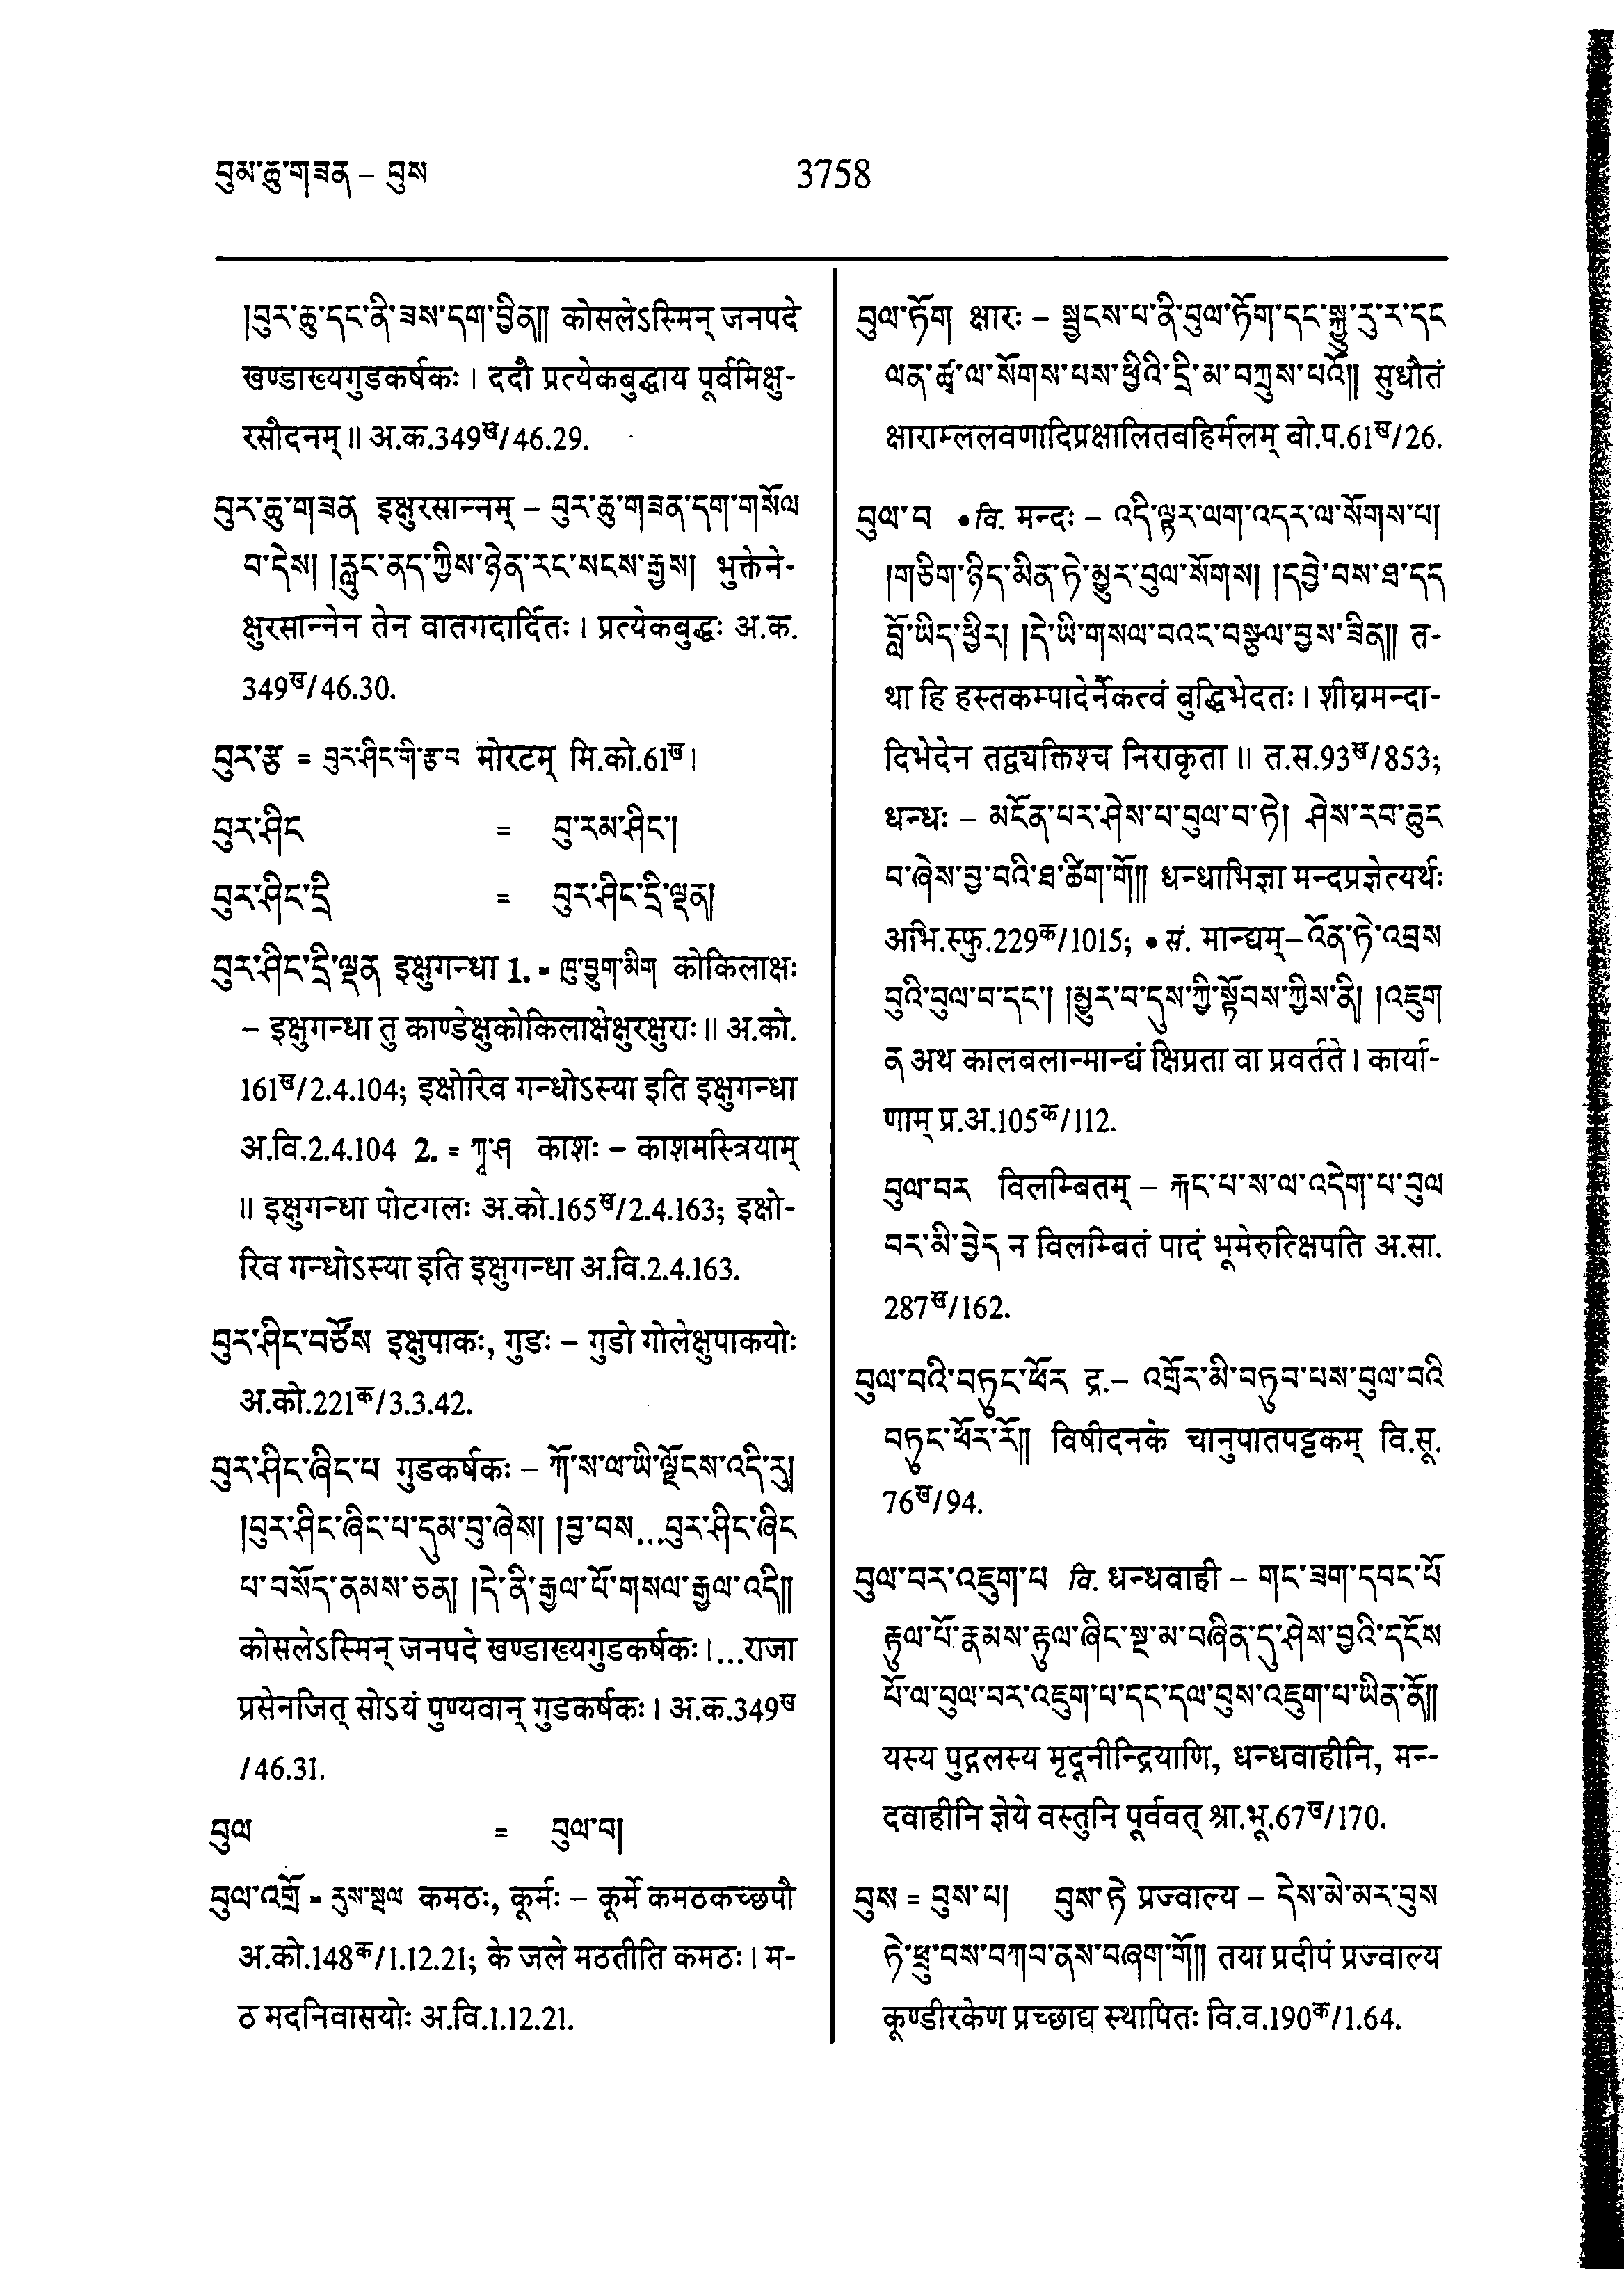 བུམ་ཆུ་གཟན – བུས
3758
།བུར་ཆུ་དང་ནི་ཟས་དག་བྱིན།། कोसलेऽस्मिन् जनपदे
खण्डाख्यगुडकर्षकः । ददौ प्रत्येकबुद्धाय पूर्वमिक्षु-
रसौदनम् ॥ अ.क.349ख/46.29.
བུར་ཆུ་གཟན इक्षुरसान्नम् – བུར་ཆུ་གཟན་དག་གསོལ
བ་དེས། །རླུང་ནད་ཀྱིས་ཉེན་རང་སངས་རྒྱས། भुक्तेने-
क्षुरसान्नेन तेन वातगदार्दितः । प्रत्येकबुद्धः अ.क.
349ख/46.30.
བུར་རྩ = བུར་ཤིང་གི་རྩ་བ मोरटम् मि.को.61ख ।
བུར་ཤིང = བུ་རམ་ཤིང་།
བུར་ཤིང་དྲི = བུར་ཤིང་དྲི་ལྡན།
བུར་ཤིང་དྲི་ལྡན इक्षुगन्धा 1. = ཁུ་བྱུག་མིག कोकिलाक्षः
– इक्षुगन्धा तु काण्डेक्षुकोकिलाक्षेक्षुरक्षुराः ॥ अ.को.
161ख/2.4.104; इक्षोरिव गन्धोऽस्या इति इक्षुगन्धा
अ.वि.2.4.104 2. = ཀཱ་ཤ काशः – काशमस्त्रियाम्
॥ इक्षुगन्धा पोटगलः अ.को.165ख/2.4.163; इक्षो-
रिव गन्धोऽस्या इति इक्षुगन्धा अ.वि.2.4.163.
བུར་ཤིང་བཙོས इक्षुपाकः, गुडः – गुडो गोलेक्षुपाकयोः
अ.को.221क/3.3.42.
བུར་ཤིང་ཞིང་པ गुडकर्षकः – ཀོ་ས་ལ་ཡི་ལྗོངས་འདི་རུ།
།བུར་ཤིང་ཞིང་པ་དུམ་བུ་ཞེས། །བྱ་བས...བུར་ཤིང་ཞིང
པ་བསོད་ནམས་ཅན། །དེ་ནི་རྒྱལ་པོ་གསལ་རྒྱལ་འདི།།
कोसलेऽस्मिन् जनपदे खण्डाख्यगुडकर्षकः ।...राजा
प्रसेनजित् सोऽयं पुण्यवान् गुडकर्षकः । अ.क.349ख
/46.31.
བུལ = བུལ་བ།
བུལ་འགྲོ = རུས་སྦལ कमठः, कूर्मः – कूर्मे कमठकच्छपौ
अ.को.148क/1.12.21; के जले मठतीति कमठः । म-
ठ मदनिवासयोः अ.वि.1.12.21.
བུལ་ཏོག क्षारः – སྦྱངས་པ་ནི་བུལ་ཏོག་དང་སྐྱུ་རུ་ར་དང
ལན་ཚྭ་ལ་སོགས་པས་ཕྱིའི་དྲི་མ་བཀྲུས་པའོ།། सुधौतं
क्षाराम्ललवणादिप्रक्षालितबहिर्मलम् बो.प.61ख/26.
བུལ་བ • वि. मन्दः – འདི་ལྟར་ལག་འདར་ལ་སོགས་པ།
།གཅིག་ཉིད་མིན་ཏེ་མྱུར་བུལ་སོགས། །དབྱེ་བས་ཐ་དད
བློ་ཡིད་ཕྱིར། །དེ་ཡི་གསལ་བའང་བསྩལ་བྱས་ཟིན།། त-
था हि हस्तकम्पादेर्नैकत्वं बुद्धिभेदतः । शीघ्रमन्दा-
दिभेदेन तद्व्यक्तिश्च निराकृता ॥ त.स.93ख/853;
धन्धः – མངོན་པར་ཤེས་པ་བུལ་བ་ཏེ། ཤེས་རབ་ཆུང
བ་ཞེས་བྱ་བའི་ཐ་ཚིག་གོ།། धन्धाभिज्ञा मन्दप्रज्ञेत्यर्थः
अभि.स्फु.229क/1015; • सं. मान्द्यम्–འོན་ཏེ་འབྲས
བུའི་བུལ་བ་དང་། །མྱུར་བ་དུས་ཀྱི་སྟོབས་ཀྱིས་ནི། །འཇུག
ན अथ कालबलान्मान्द्यं क्षिप्रता वा प्रवर्तते । कार्या-
णाम् प्र.अ.105क/112.
བུལ་བར विलम्बितम् – རྐང་པ་ས་ལ་འདེག་པ་བུལ
བར་མི་བྱེད न विलम्बितं पादं भूमेरुत्क्षिपति अ.सा.
287ख/162.
བུལ་བའི་བཏུང་ཕོར द्र.– འགྲོར་མི་བཏུབ་པས་བུལ་བའི
བཏུང་ཕོར་རོ།། विषीदनके चानुपातपट्टकम् वि.सू.
76ख/94.
བུལ་བར་འཇུག་པ वि. धन्धवाही – གང་ཟག་དབང་པོ
རྟུལ་པོ་རྣམས་རྟུལ་ཞིང་སྔ་མ་བཞིན་དུ་ཤེས་བྱའི་དངོས
པོ་ལ་བུལ་བར་འཇུག་པ་དང་དལ་བུས་འཇུག་པ་ཡིན་ནོ།།
यस्य पुद्गलस्य मृदूनीन्द्रियाणि, धन्धवाहीनि, मन्-
दवाहीनि ज्ञेये वस्तुनि पूर्ववत् श्रा.भू.67ख/170.
བུས = བུས་པ། བུས་ཏེ प्रज्वाल्य – དེས་མེ་མར་བུས
ཏེ་ཕྲུ་བས་བཀབ་ནས་བཞག་གོ།། तया प्रदीपं प्रज्वाल्य
कूण्डीरकेण प्रच्छाद्य स्थापितः वि.व.190क/1.64.